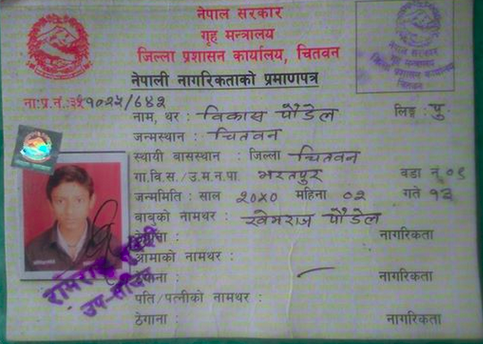 नेपाल सरकार
गृह मन्त्रालय
जिल्ला प्रशासन कार्यालय, चितवन
नेपाली नागरिकताको प्रमाणपत्र
ना.प्र.नं.:३५१०२५/६४८
नाम, थर : विकास पौडेल लिङ्ग: पु.
जन्मस्थान : चितवन
स्थायी बासस्थान : जिल्ला चितवन
गा.वि.स./उ.म.न.पा. भरतपुर वडा नं.
जन्ममिति : साल २०५० महिना ०२ गते १३
बाबुको नामथर : खेमराज पौडेल
ठेगाना : नागरिकता
आमाको नामथर :
ठेगाना : नागरिकता
पति/पत्नीको नामथर :
ठेगाना : नागरिकता
उप-सचिव